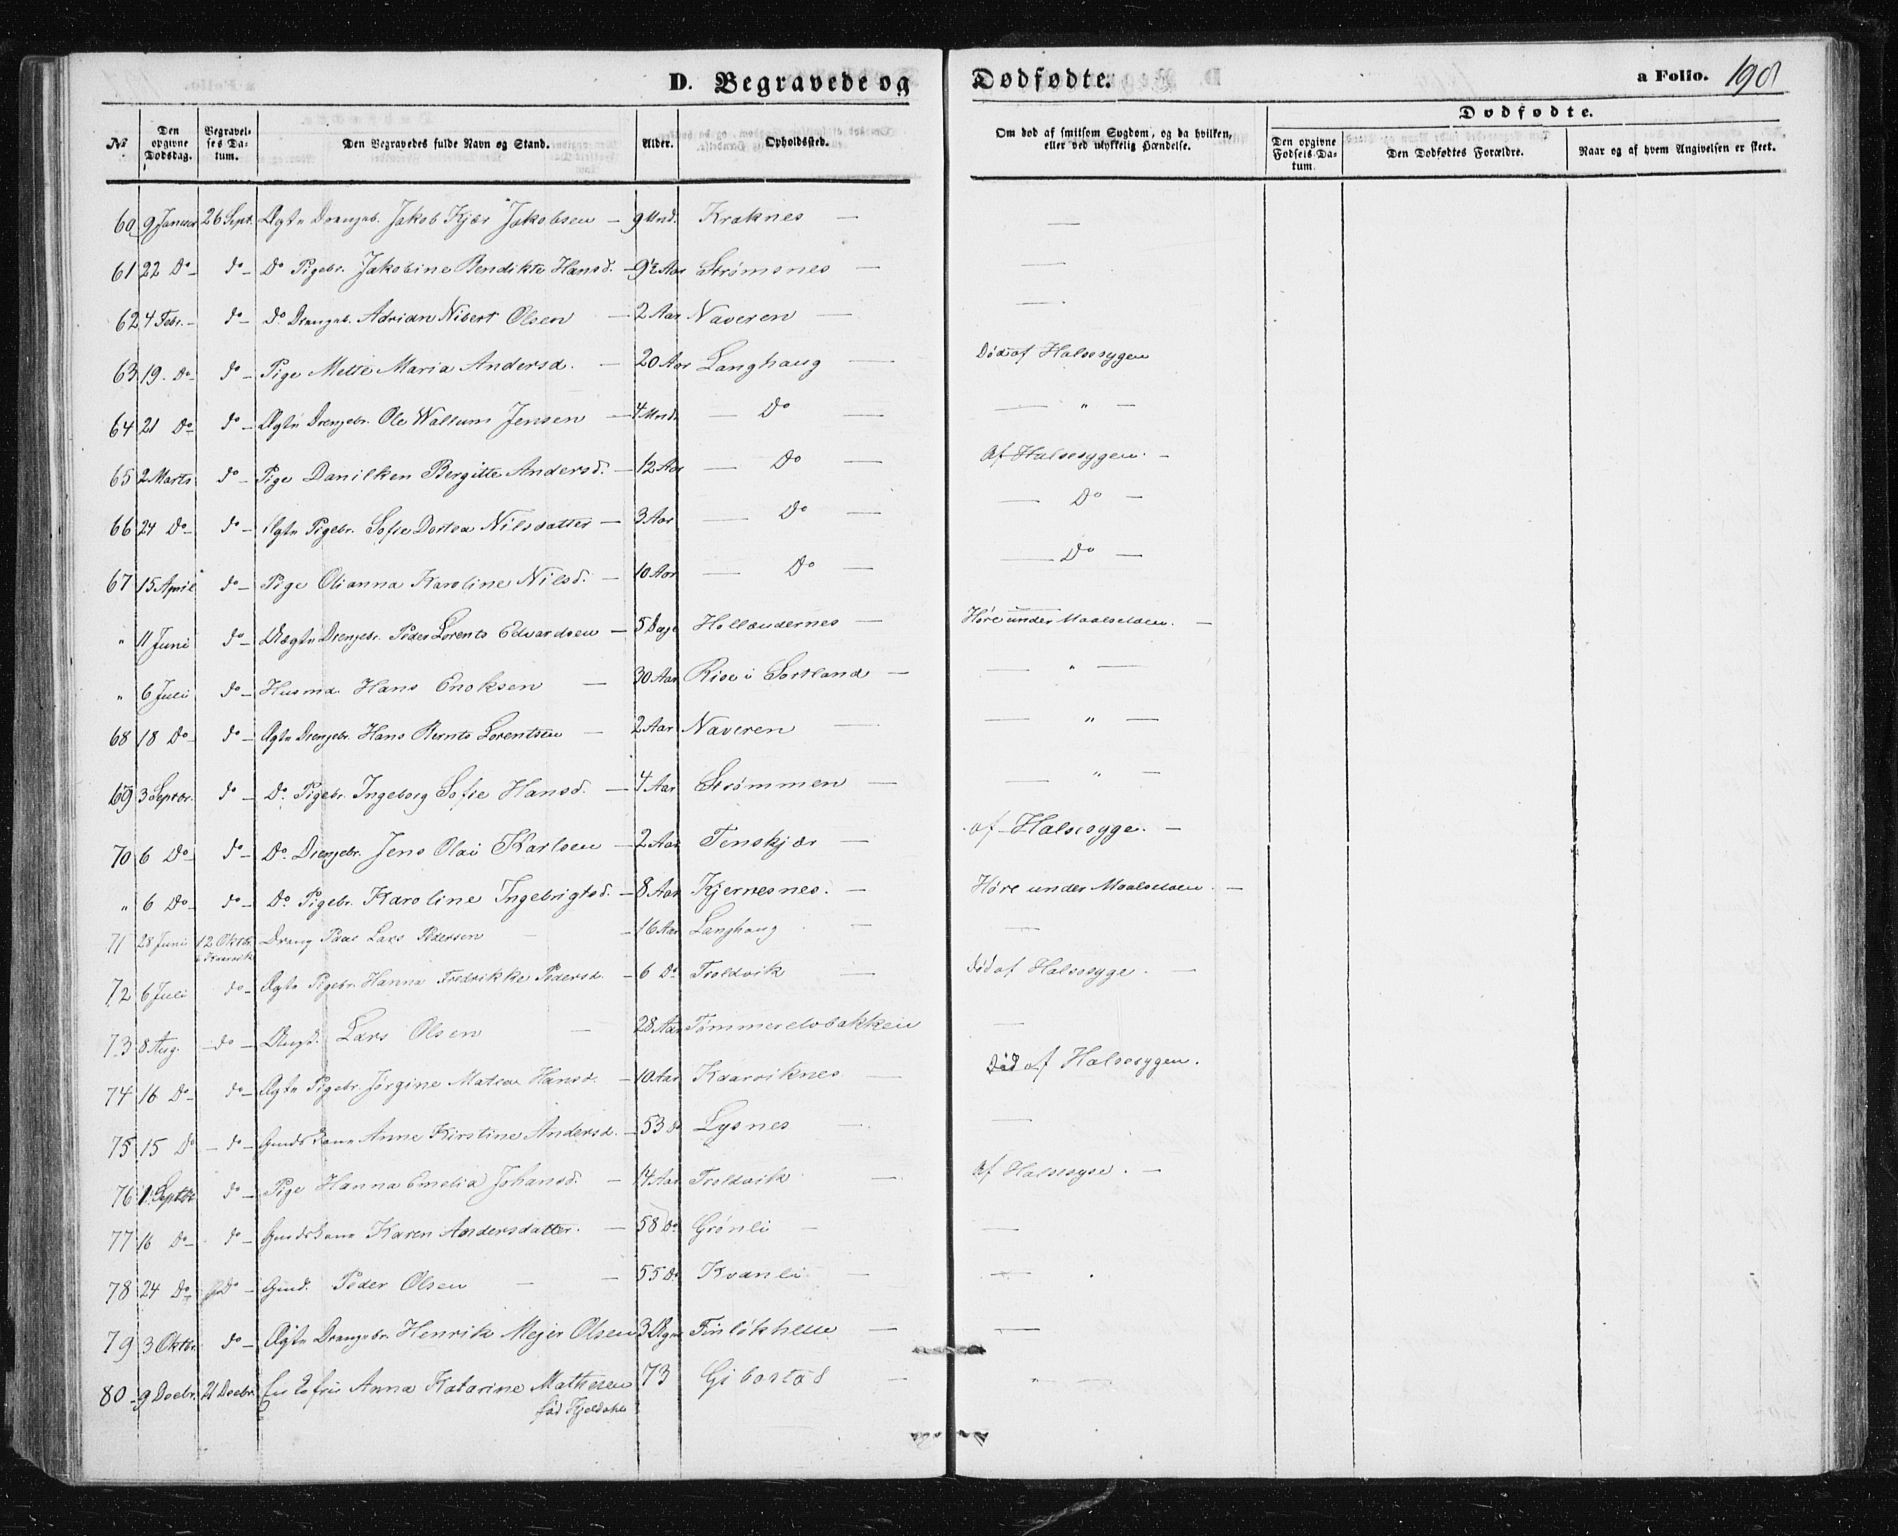 D. Begravede og Dødfødte. a Folio. 198
№ Den opgivne Dødsdag. Begravelses Datum. Den Begravedes fulde Navn og Stand. Alder. Opholdssted. Om død af smitsom Sygdom, og da hvilken, eller ved ulykkelig Hændelse. Dødfødte.
Den opgivne Fødsels-Datum. Den Dødfødtes Forældre. Naar og af hvem Angivelsen er skeet.
60 9 Januar 26 Sept. Ægte Drengeb. Jakob Kjær Jakobsen — 9 Mnd. Kraknes — —
61 22 Do — do — Do Pigebr. Jakobine Bendikte Hansd. — 9½ Aar Strømsnes — —
62 4 Febr. — do — Do Drengeb. Adrian Nibert Olsen — 2 Aar Naveren — —
63 19. Do — do — Pige Mette Maria Andersd. — 20 Aar Langhaug — Død af Halssygen
64 21 Do do — Ægte Drengebr. Ole Waltum Jensen — 4 Mnd. — Do — — " —
65 2 Marts do — Pige Danilken Bergitte Andersd. — 12 Aar — Do — Af Halssygen. —
66 24 Do — do — Ægte Pigebr. Sofie Dortea Nilsdatter — 3 Aar — Do — — Do —
67 15 April do — Pige Olianna Karoline Nilsd. — 10 Aar — Do — — Do —
" 11 Juni do — Uægte Drengebr. Peder Lorents Edvardsen — 5 Dage Hollændernes — Høre under Maalselven. —
" 6 Juli do — Husmd. Hans Enoksen — 30 Aar Rise i Sortland — — " —
68 18 Do — do — Ægte Drengebr. Hans Bernts Lorentsen — 2 Aar Naveren — — " —
69 3 Septbr. do — Do. Pigebr. Ingeborg Sofie Hansd. — 4 Aar Strømmen — — " —
70 6 Do — do — Do. Drengebr. Jens Olai Karlsen — 2 Aar Tenskjær — af Halssyge. —
" 6 Do — do — Do. Pigebr. Karoline Ingebrigtsd. — 8 Aar Kjernesnes. — Høre under Maalselven. —
71 28 Juni 12 Oktbr. Dreng Lars Pedersen — 16 Aar Langhaug — —
72 6 Juli do — Ægte Pigebr. Hanna Fredrikke Pedersd. — 6 Do Troldvik — Død af Halssyge. —
73 8 Aug. — do — Ungd. Lars Olsen — 28 Aar Tømmerelvbakken —
74 16 Do — do — Ægte Pigebr. Jørgine Matea Hansd. — 10 Aar Kaarviknes — Død af Halssygen.
75 15 Do — do — Gmdskone Anne Kirstine Andersd. — 53 Do Lysnes — —
76 1. Septbr. do — Pige Hanna Emelia Johansd. — 14 Aar Troldvik — af Halssyge. —
77 16 Do — do — Gmdskone Karen Andersdatter. — 58 Do Grønli — —
78 24 Do — Do — Gmd. Peder Olsen — — 55 Do Kvanli — —
79 3 Oktbr. do — Ægte Drengebr. Henrik Mejer Olsen 3 Uger Finløkhelle — —
80 — 9 Decbr. 21 Decbr. Anna Katarine Mathesen 73 Gibostad — " —
fød Kjeldahl